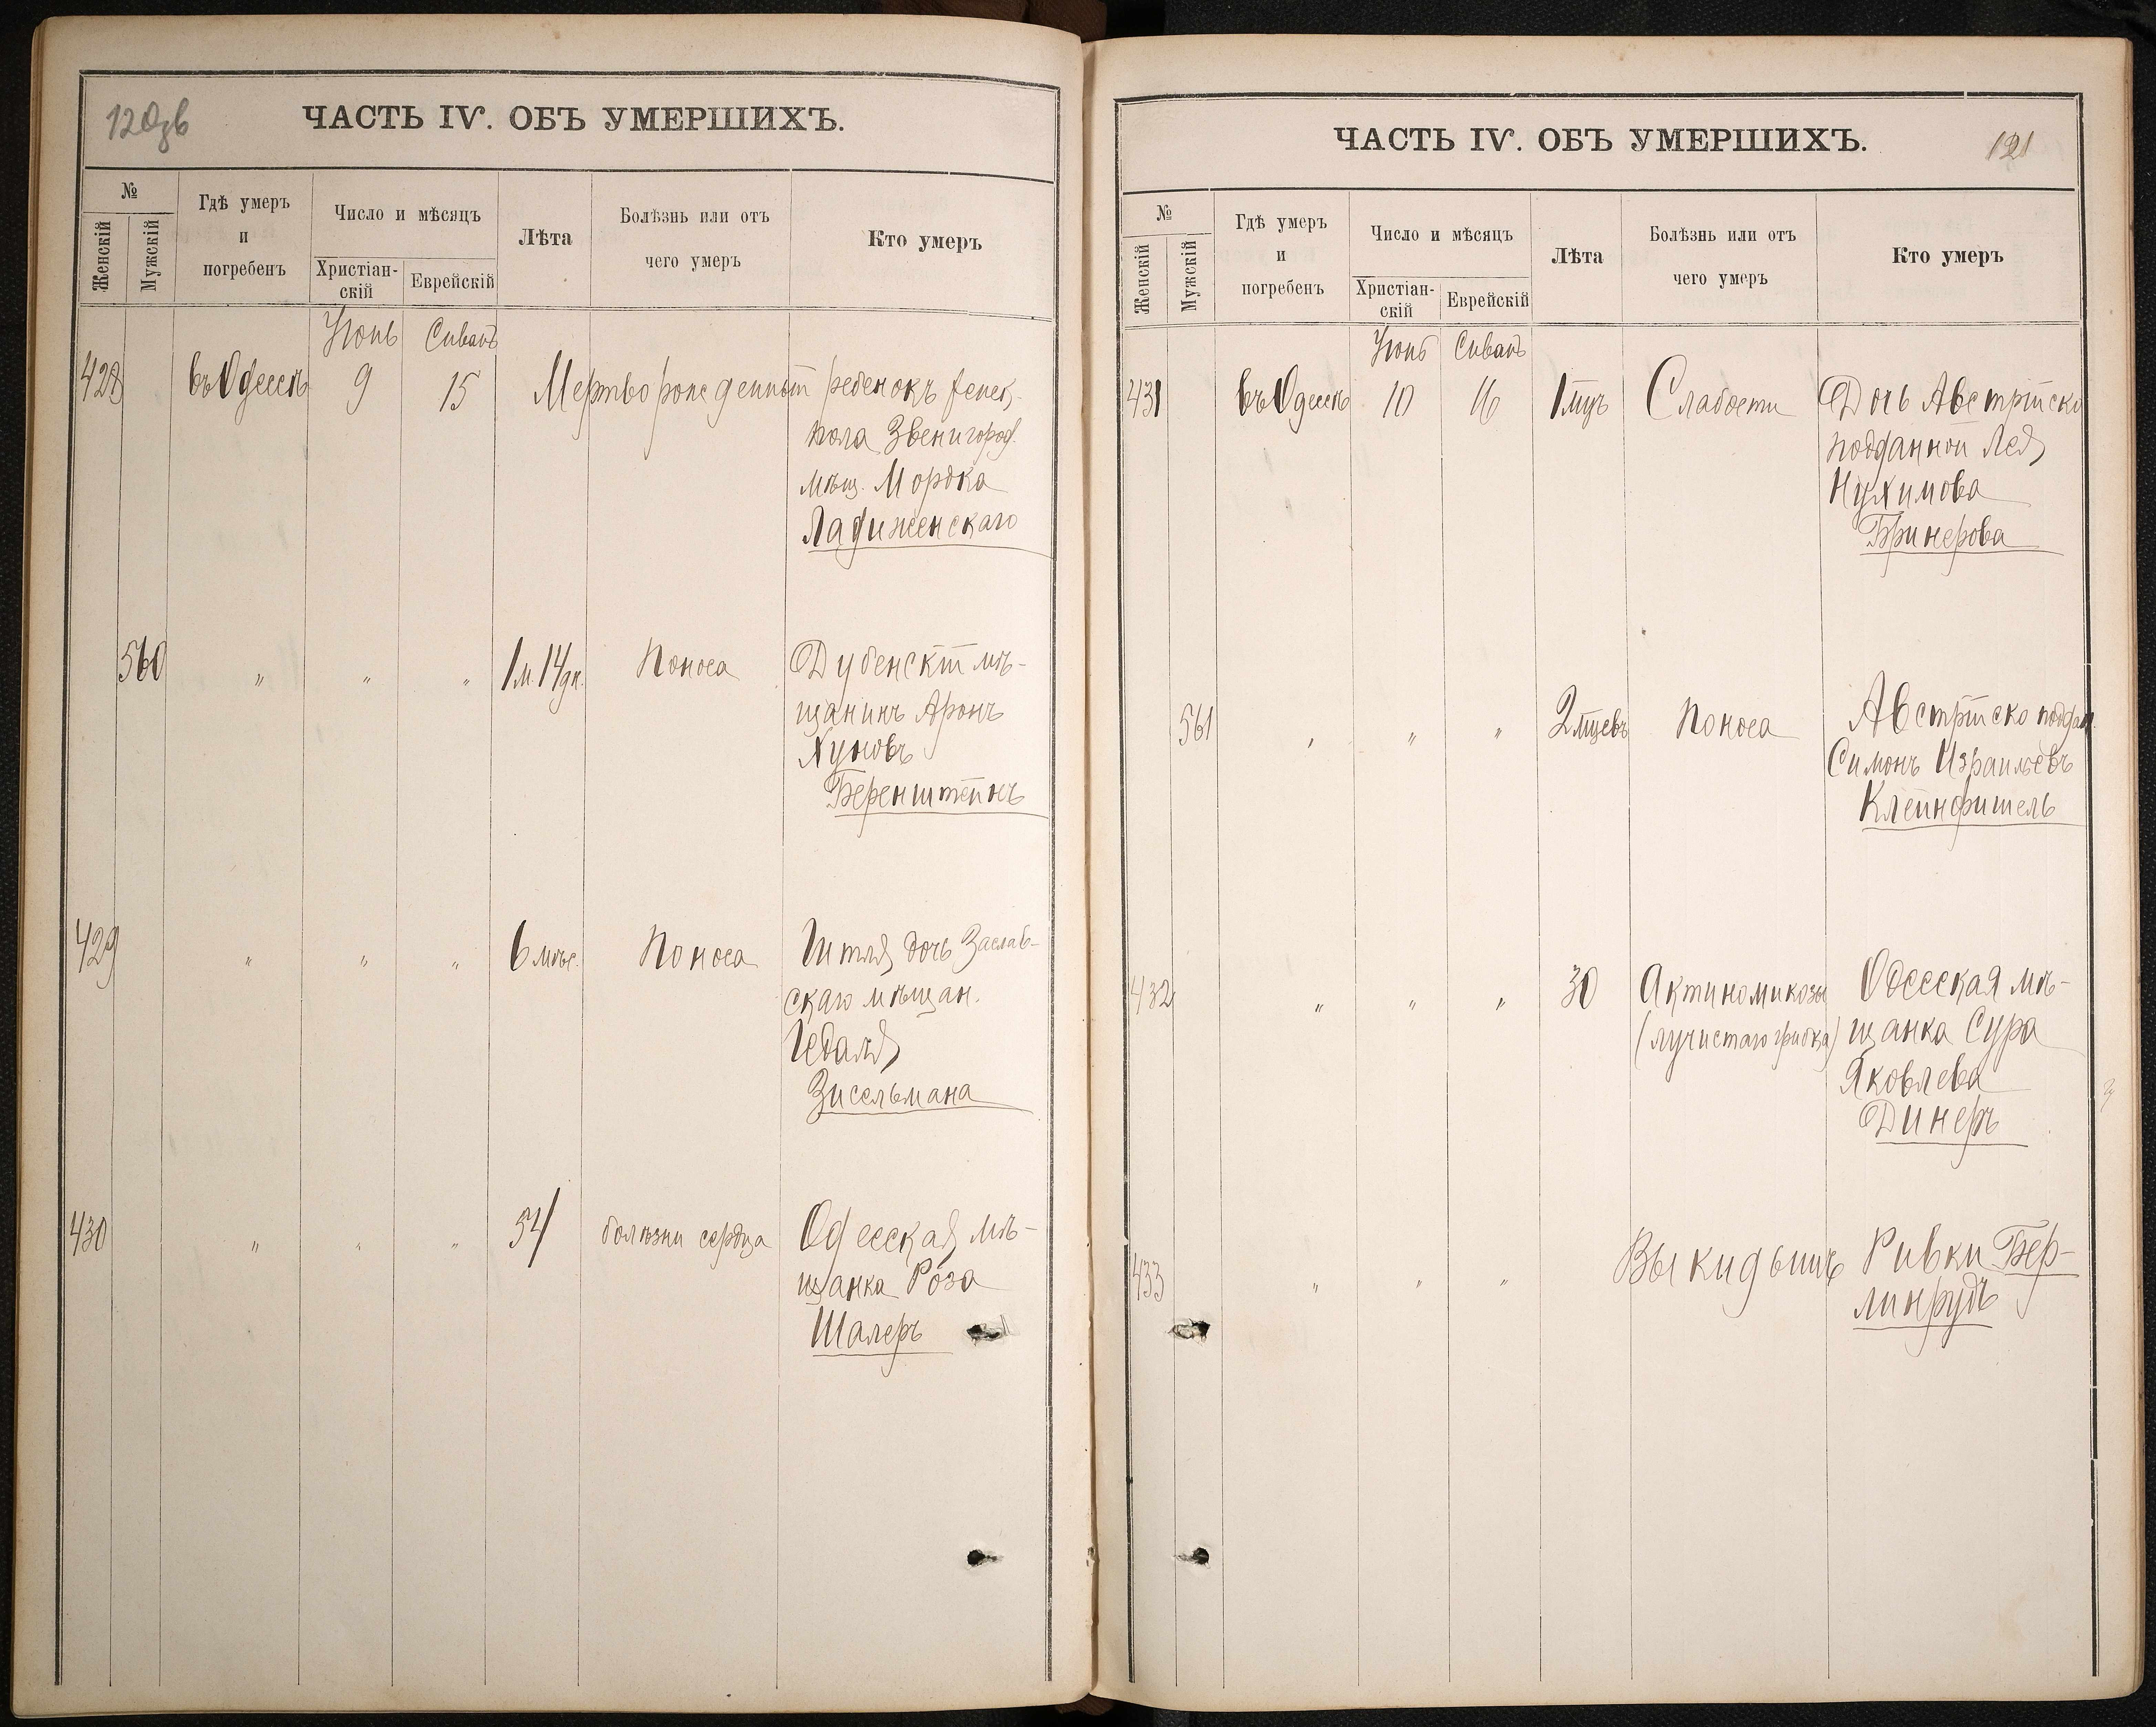 120зв
ЧАСТЬ IV. ОБЪ УМЕРШИХЪ.
№
Женскій
Мужскій
Гдѣ умеръ
и
погребенъ
Число и мѣсяцъ
Христіан-
скій
Еврейскій
Лѣта
Болѣзнь или отъ
чего умеръ
Кто умеръ
Іюнь Сиванъ
428 въ Одессѣ 9 15 Мертворожденный ребенокъ женск.
пола Звенигород.
мѣщ. Мордка
Ладиженскаго
560 „ „ „ 1 м. 14 дн. Поноса Дубенскій мѣ-
щанинъ Аронъ
Хуновъ
Беренштейнъ
429 „ „ „ 6 мѣс. Поноса дочь Заслав-
скаго мѣщан.
Гедаля
Зисельмана
430 „ „ „ 54 болѣзни сердца Одесская мѣ-
щанка Роза
Шалеръ
ЧАСТЬ IV. ОБЪ УМЕРШИХЪ.
121
№
Женскій
Мужскій
Гдѣ умеръ
и
погребенъ
Число и мѣсяцъ
Христіан-
скій
Еврейскій
Лѣта
Болѣзнь или отъ
чего умеръ
Кто умеръ
Іюнь Сиванъ
431 въ Одессѣ 10 16 1 мцъ Слабости Дочь Австрійско
подданной Лея
Нухимова
Бринерова
561 „ „ „ 2 мцевъ Поноса Австрійско поддан.
Симонъ Израильевъ
Клейнфишель
432 „ „ „ 30 Актиномикозы Одесская мѣ-
(лучистаго грибка) щанка Сура
Яковлева
Динеръ
433 „ „ „ Выкидышъ Ривки Бер-
линрудъ